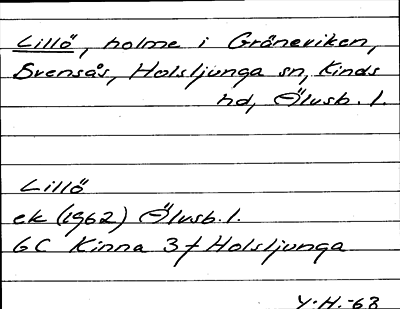 Lillö, holme i Gröneviken,
Svensås, Holsljunga sn, Kinds
hd, Älvsb. l.
Lillö
ek (1962) Älvsb. l.
6C Kinna 3f Holsljunga
Y.H.-68